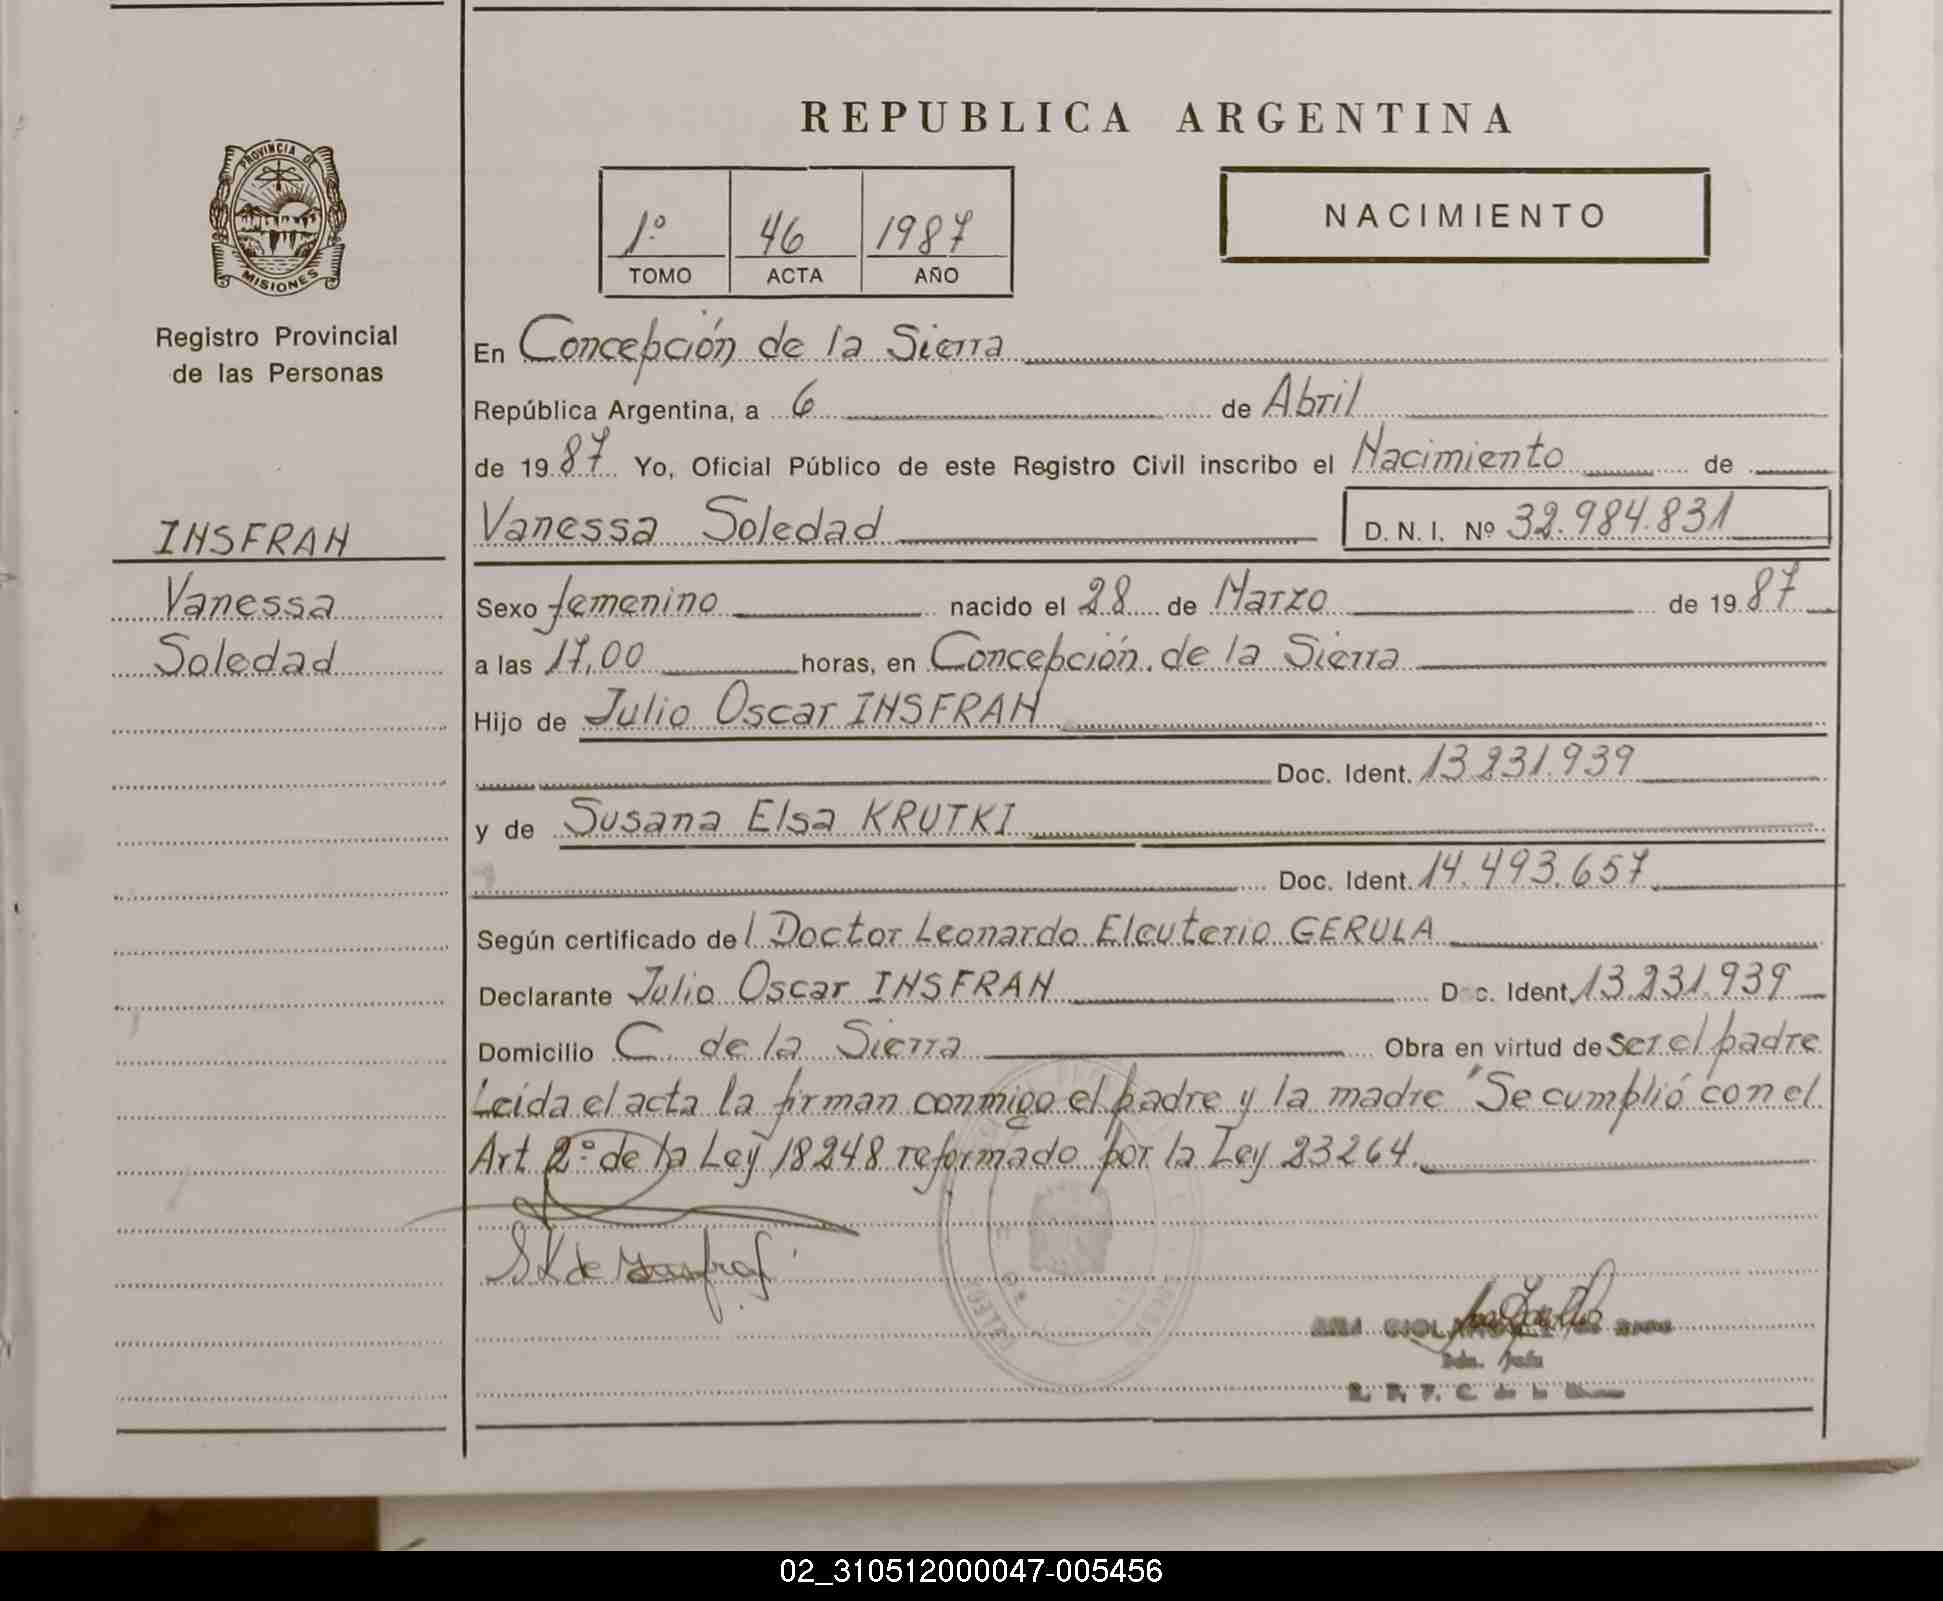 REPUBLICA ARGENTINA
PROVINCIA DE
MISIONES
Registro Provincial
de las Personas
1º 46 1987
TOMO ACTA AÑO
NACIMIENTO
En Concepción de la Sierra
República Argentina, a 6 de Abril
de 1987 Yo, Oficial Público de este Registro Civil inscribo el Nacimiento de
INSFRAN
Vanessa
Soledad
Vanessa Soledad D. N. I. Nº 32.984.831
Sexo femenino nacido el 28 de Marzo de 1987
a las 17,00 horas, en Concepción de la Sierra
Hijo de Julio Oscar INSFRAN
Doc. Ident. 13.231.939
y de Susana Elsa KRUTKI
Doc. Ident. 14.493.657
Según certificado del Doctor Leonardo Eleuterio GERULA
Declarante Julio Oscar INSFRAN Doc. Ident. 13.231.939
Domicilio C. de la Sierra Obra en virtud de ser el padre
Leida el acta la firman conmigo el padre y la madre "Se cumplió con el
Art. 2º de la Ley 18248 reformado por la Ley 23264.
S K de
02_310512000047-005456